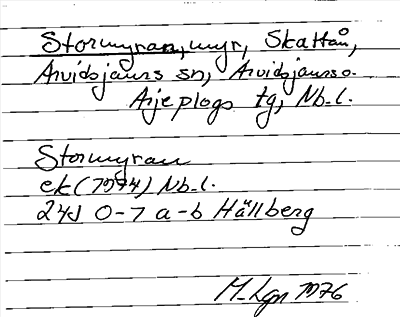 Stormyran, myr, Skattån,
Arvidsjaurs sn, Arvidsjaurs o.
Arjeplogs tg, Nb. l.
Stormyran
ek (1974) Nb. l.
24J 0-7 a-b Hällberg
M-Lgn 1976